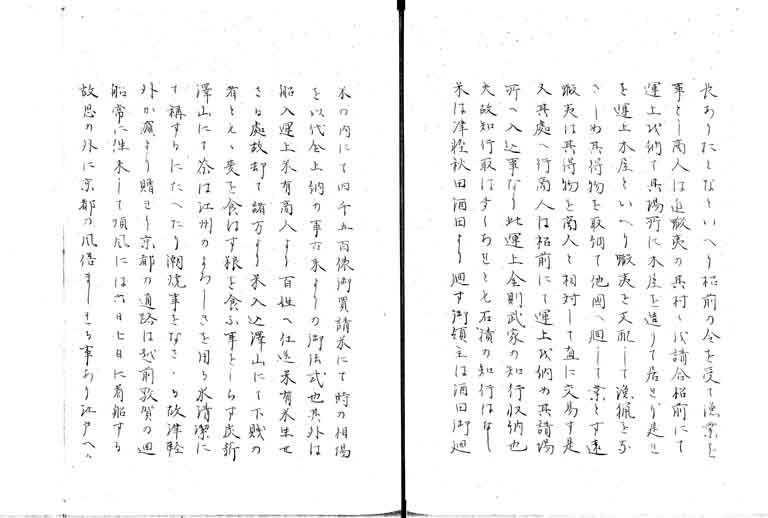 長ありたとなといへり松前の令を受て漁業を
事とし商人は近蝦夷の其村々代請合松前にて
運上代納て其場所に木屋を造りて居せり是を
を運上木屋といへり蝦夷を支配して漁猟をな
さしめ其得物を取納て他国へ廻して業とす遠
蝦夷は其得物を商人と相対して直に交易す是
又其処へ行商人は松前にて運上代納め其請場
所へ入込事なり此運上金則武家の知行収納也
夫故知行取はすくあせと七石積の知行はなし
米は津軽秋田酒田より廻す御領主は酒田御廻
米の内にて四千五百俵御買請米にて時の相場
を以代金上納の事古来よりの御法式也其外は
船入運上米有商人より百姓へ仕送米有米生せ
さる処故却て諸方より米入込澤山にて下賎の
者とえ、麦を食はす粮を食ふ事をしらす炭薪
澤山にて茶は江州のよろしきを用る水清潔に
て称するにたへたり潮焼事をなさゝる故津軽
外か濱より贈せり京都の通路は越前敦賀の廻
船常に往来して順風には六日七日に着船する
故思の外に京都の風俗まじきる事あり江戸へハ